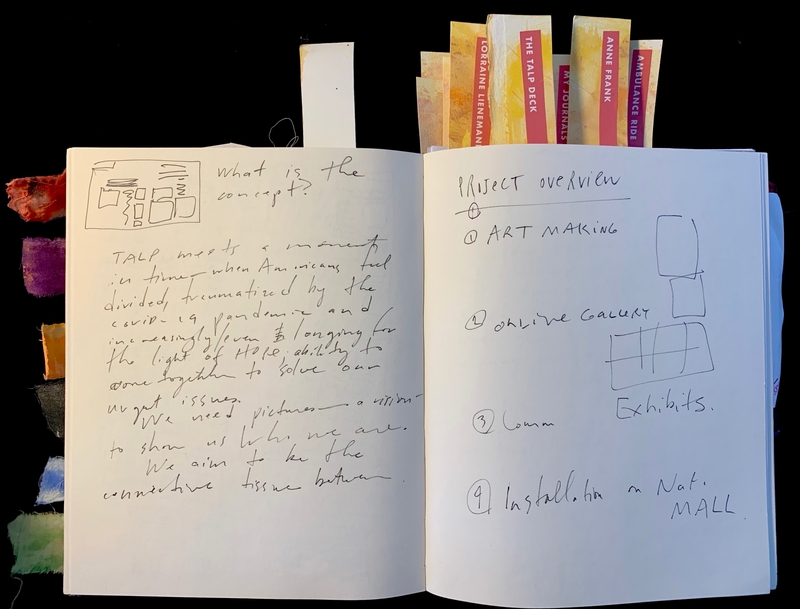 LORRAINE LIENEMAN
THE TALP DECK
MY JOURNALS
ANNE FRANK
AMBULANCE RIDE
What is the
concept?
TALP meets a moment
in time – when Americans feel
divided, traumatized by the
covid-19 pandemic and
increasingly/even longing for
the light of HOPE, ability to
come together to solve our
urgent issues.
We need pictures – a vision –
to show us who we are.
We aim to be the
connective tissue between
PROJECT OVERVIEW
① ART MAKING
② ONLINE GALLERY
Exhibits.
③ Common
④ Installation on Nat.
MALL